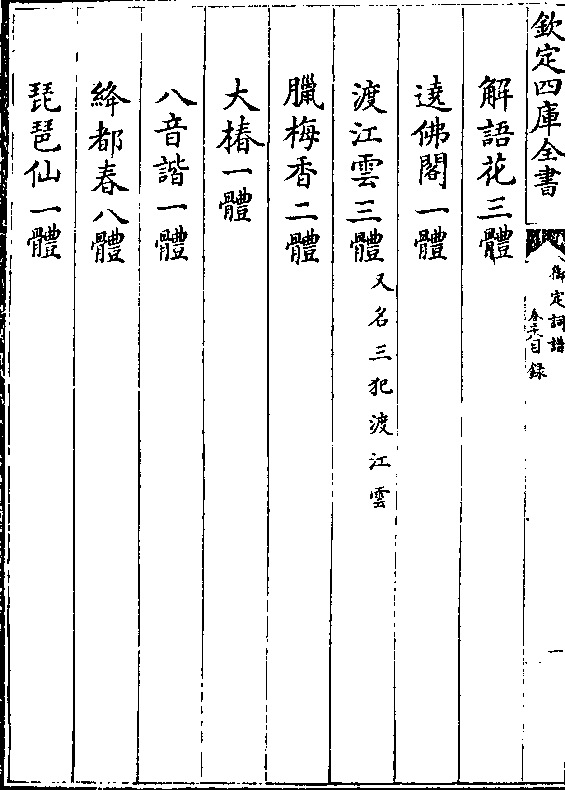 欽定四庫全書
御定詞譜
目錄
一
解語花三體
遶佛閣一體
渡江雲三體 又名三犯渡江雲
臘梅香二體
大椿一體
八音諧一體
絳都春八體
琵琶仙一體